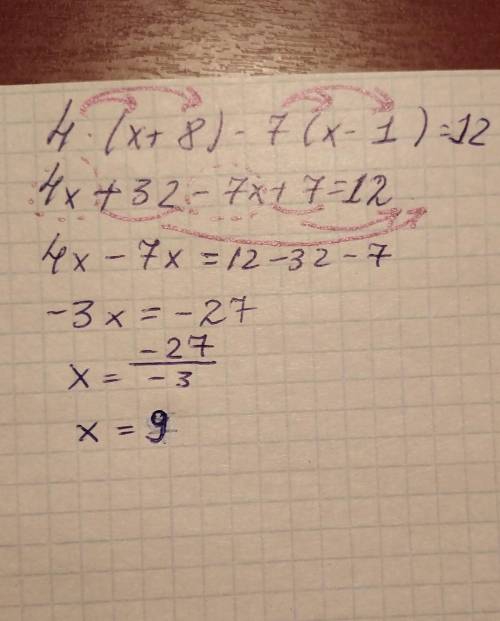 4·(x+8)-7(x-1)=12
4x+32-7x+7=12
4x-7x=12-32-7
-3x=-27
x=\frac{-27}{-3}
x=9